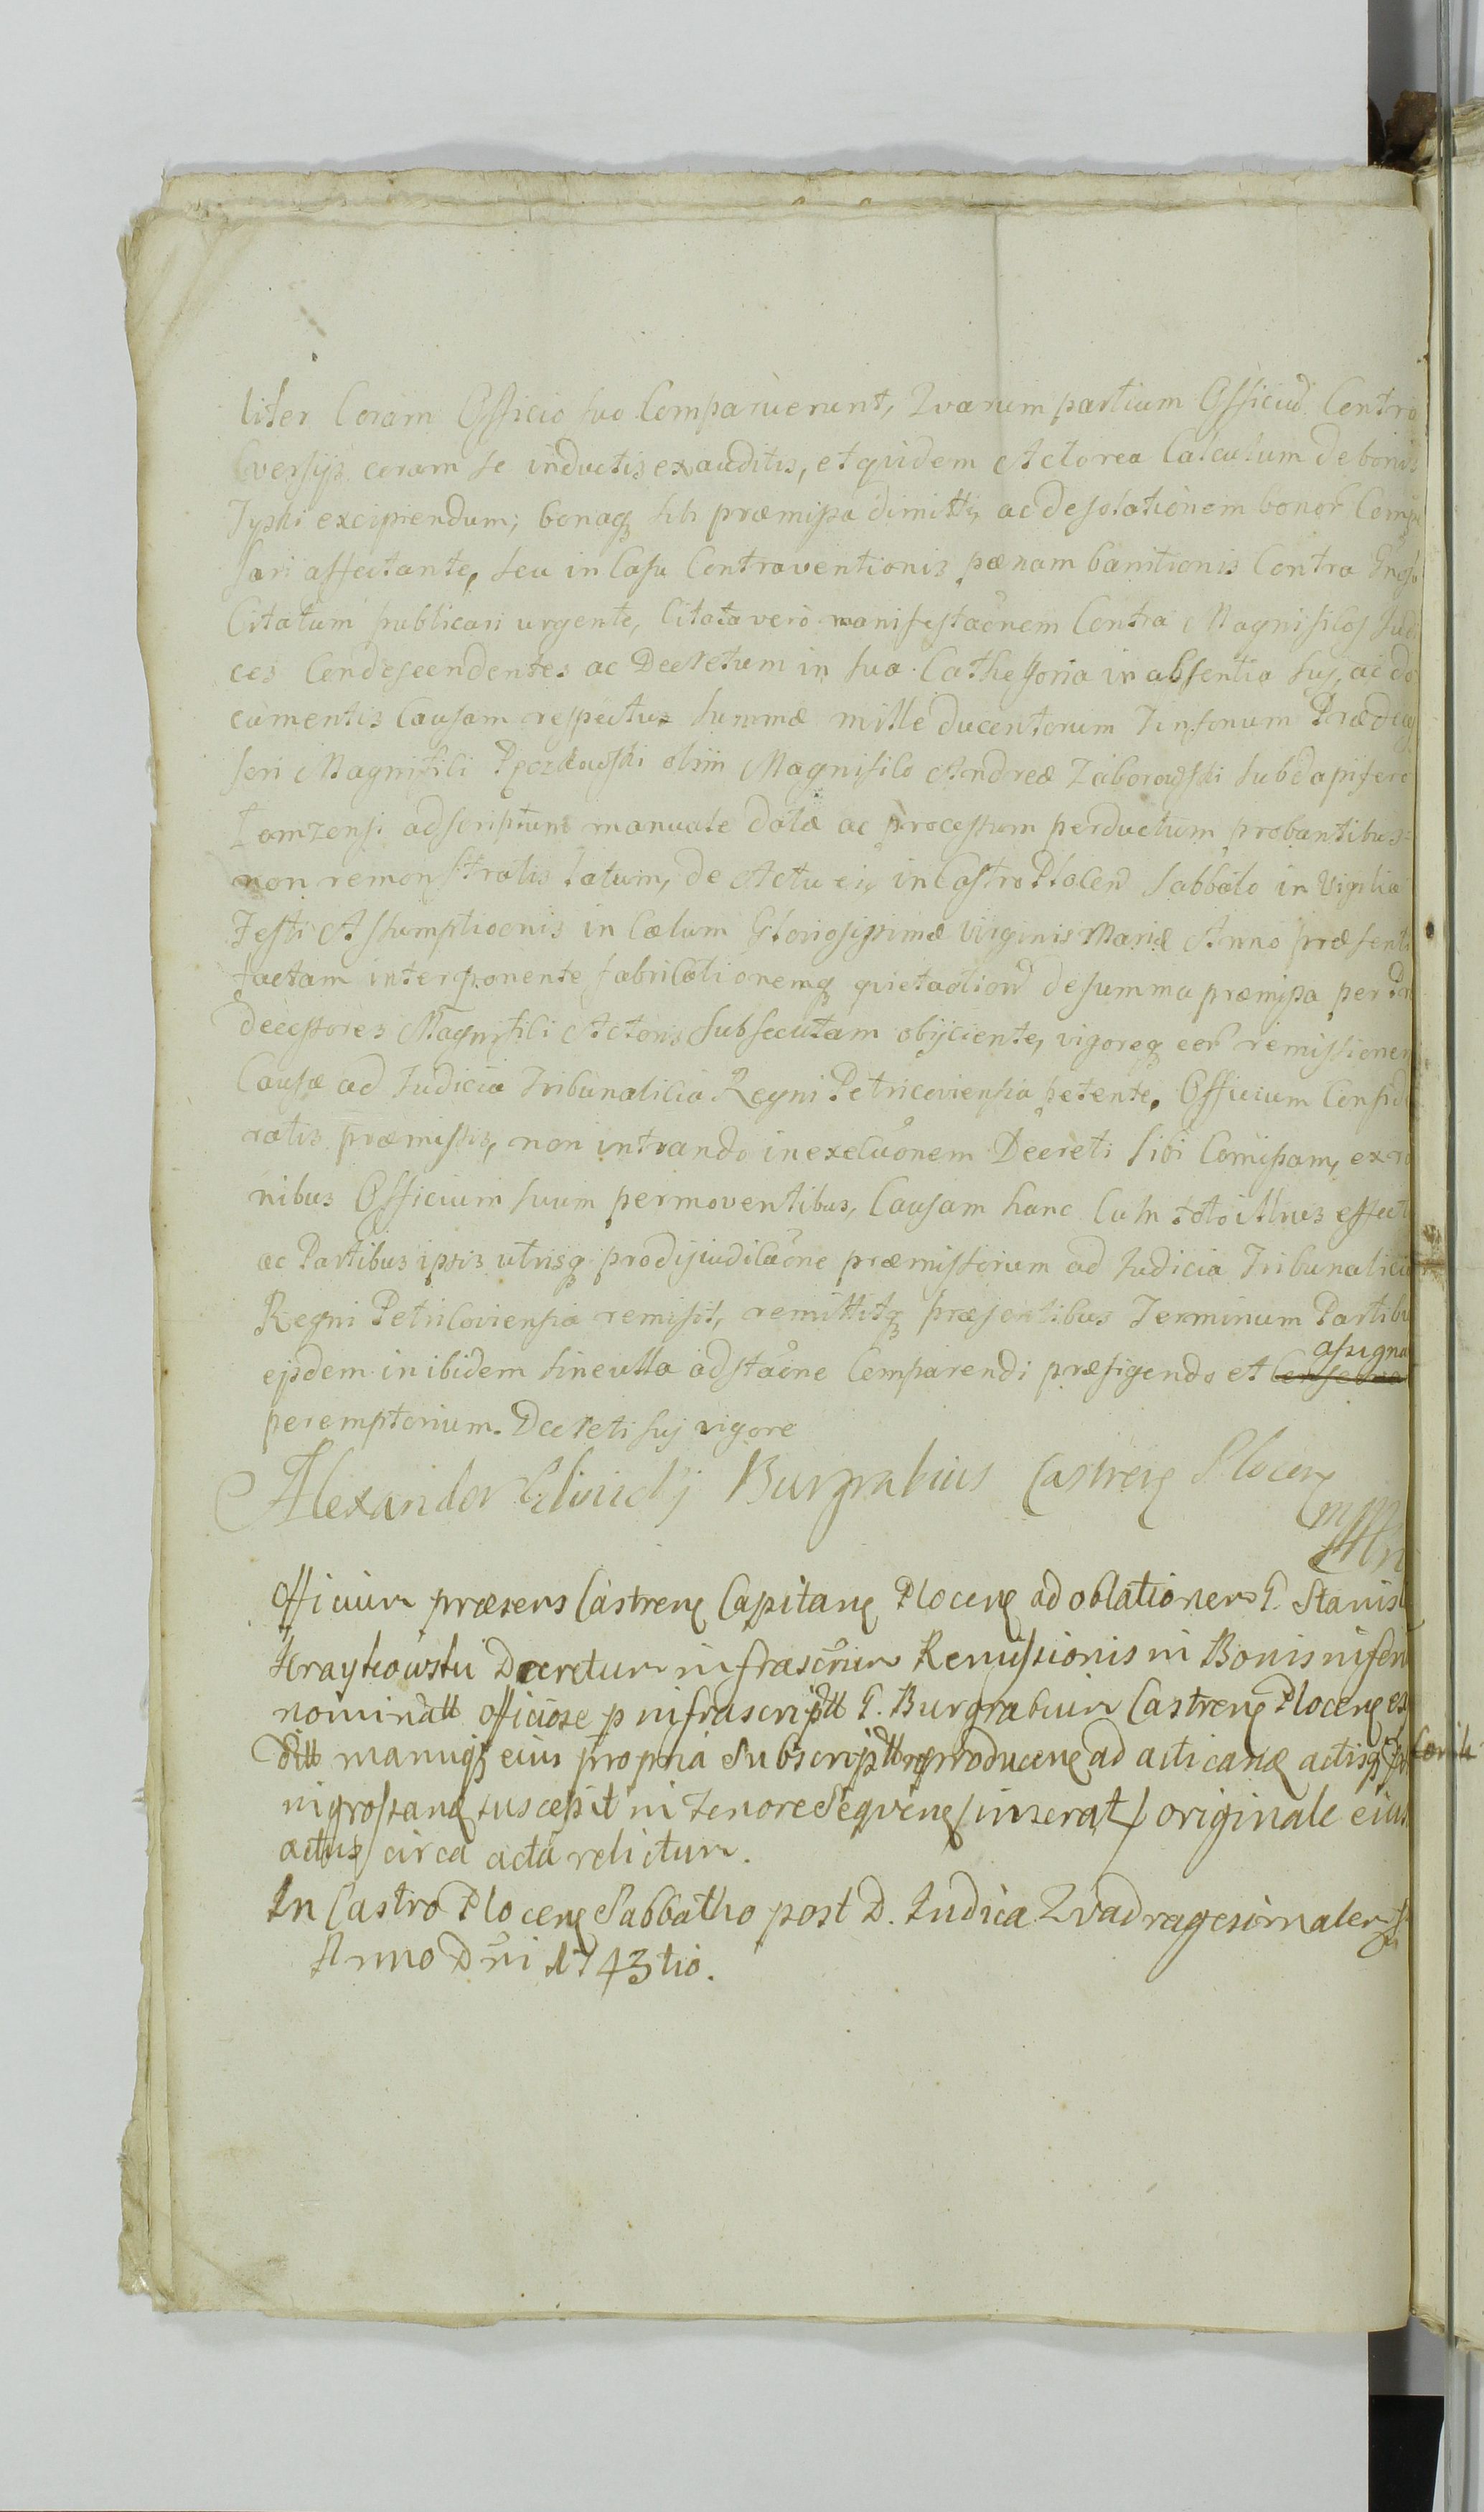 liter Coram Officio suo Comparuerunt, Qvarum partium Officiũ Contro
versijs coram se inductis exauditis, et qvidem Actorea Calculum de bonis
Jyski excipiendum; bonaq sibi præmissa dimitti, ac desolationem bonor Compe
sari affectante, seu in Casu Contraventionis pænam banitionis Contra
Citatum publicari urgente, Citata verò manifestaõnem Contra Magnificos Judi
ces Condescendentes ac Decretum in sua Cathegoria in absentia suj, ac do
cumentis Causam respectus summæ mille ducentorum Tinfonum Prædeces
sori Magnifici olim Magnifico Andreæ Zaborowski subdapifero
Lomzensi adscriptum manuale datæ ac processum perductum probantibus
non remonstratis latum, de Actu ejq in Castro Plocen Sabbato in Vigilia
Festi Assumptionis in Cælum Gloriosissimæ Virginis Mariæ Anno præsenti
factam interponente fabricationemq qvietation de summa præmissa per Præ
decessores Magnifici Actoris subsecutam obijciente, vigoreq eor remissionem
Causæ ad Judicia Tribunalicia Regni Petricoviensia petente, Officium Conside
ratis præmissis, non intrando in execuõnem Decreti sibi Comissam, ex ra
nibus Officium suum permoventibus, Causam hanc Cum toto illius effect
ac Partibus ipsis utrisq prodijudicaõne præmissorum ad Judicia Tribunalicia
Regni Petricoviensia remisit, remittitq præsentibus Terminum Partibu
assigna
ejsdem inibidem sine ulla adstaõne Comparendi præfigendo et
peremptorium. Decreti suj vigore
Alexander Burgrabius Castren Plocen
mpp
Officium præsens Castren Capitan Plocen ad oblationem G. Stanisl
Decretum infrascrum Remissionis in Bonis infer
nominatt officiose p infrascriptt G. Burgrabium Castren Plocen ex
ditt manuq eius propria Subscriptt reproducen ad acticand actisq
ingrossand suscepit in Tenore Seqven (inserat) originale eius
actus circa acta relictum.
In Castro Plocen Sabbatho post D. Judica Qvadragesimalem
Anno Dni 1743tio.